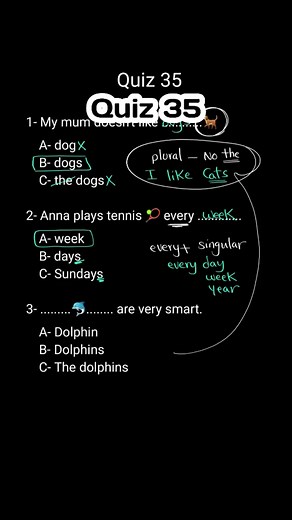 Quiz 35
Quiz 35
1- My mum doesn't like dogs
A- dog X
B- dogs
C- the dogs X
plural – No the
I like Cats
2- Anna plays tennis every week
A- week
B- days
C- Sundays
every + singular
every day
week
year
3- ................. are very smart.
A- Dolphin
B- Dolphins
C- The dolphins